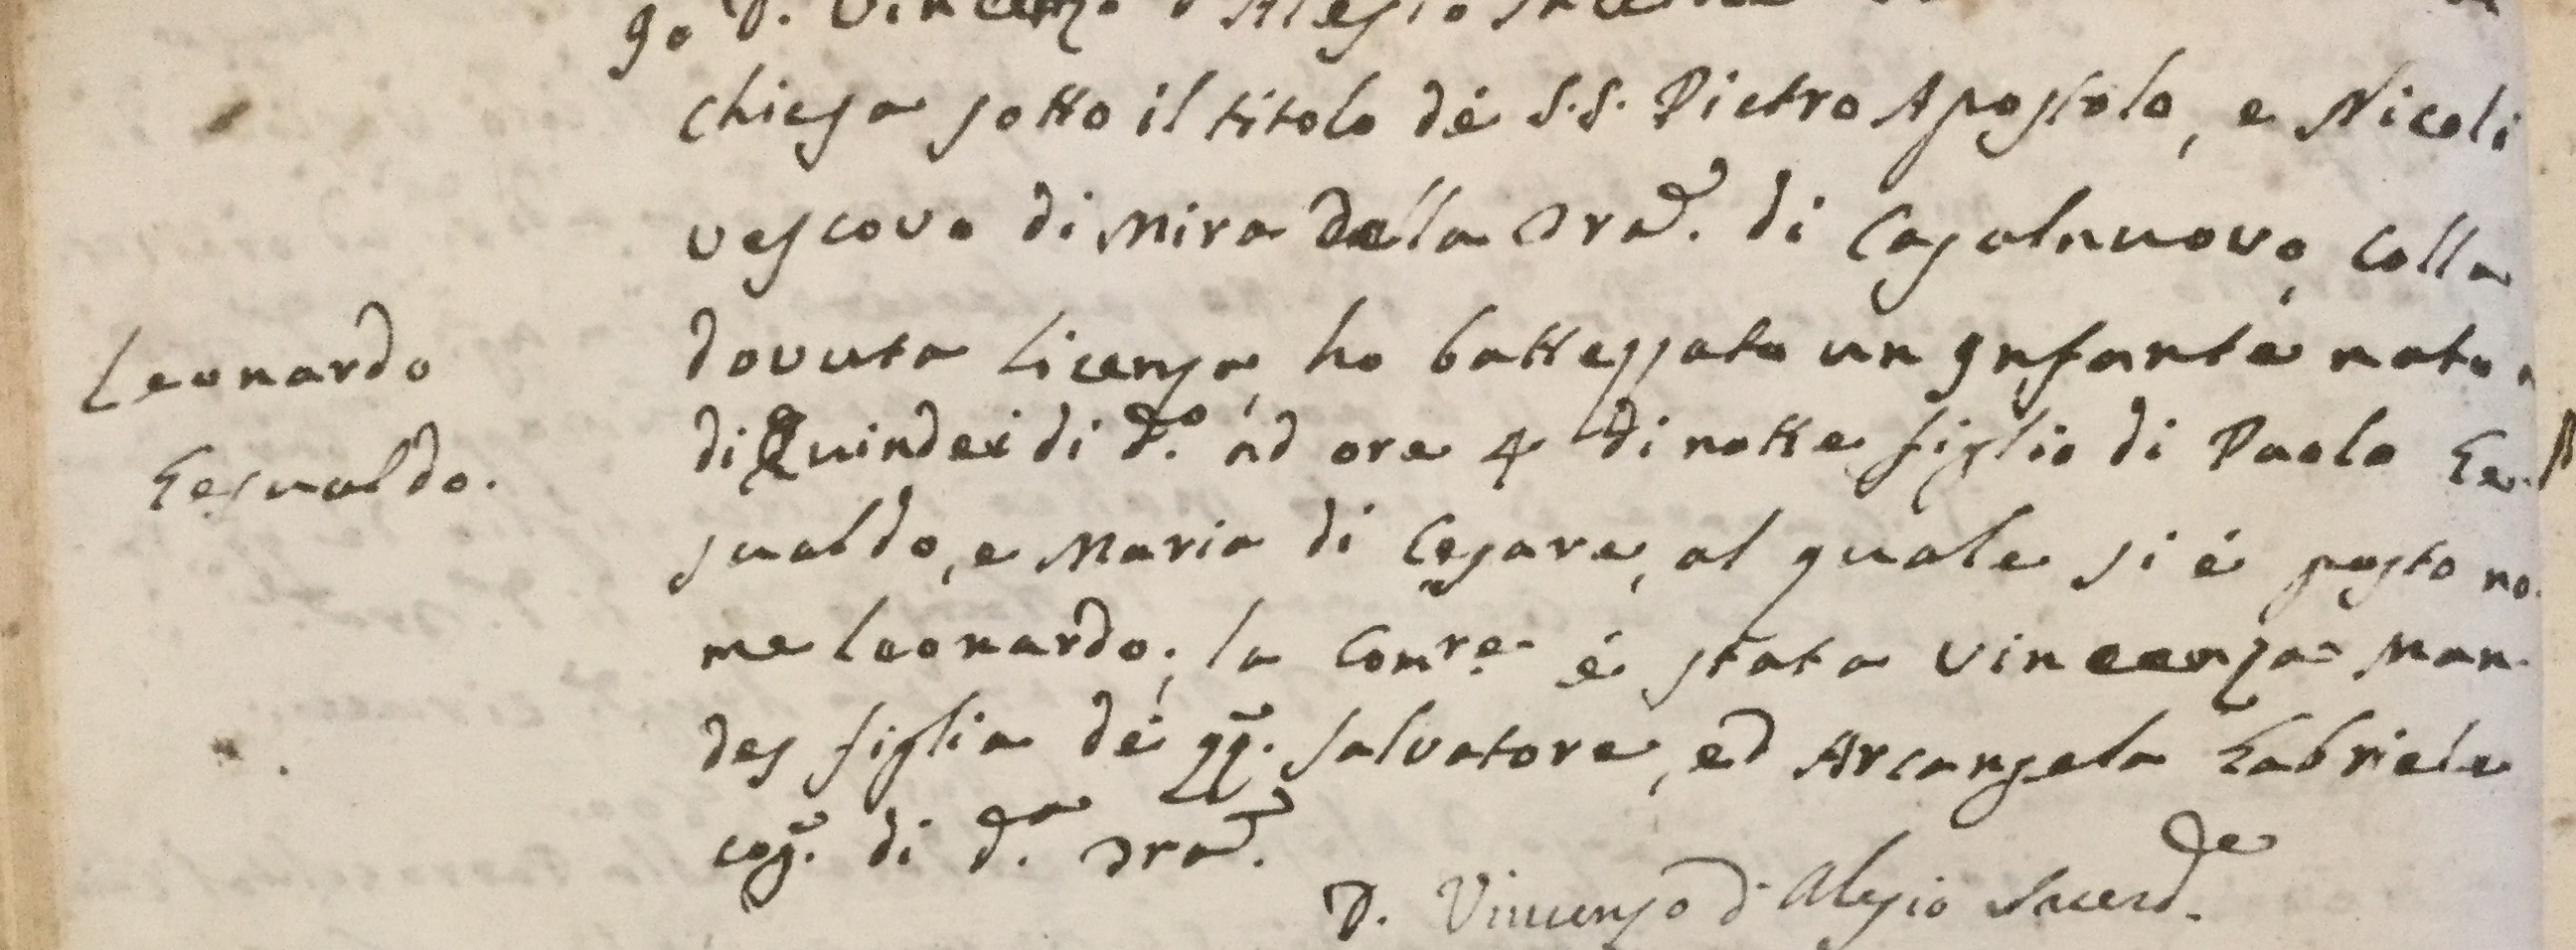 go D. Vincenzo d'Alesio
chiesa sotto il titolo dè S.S. Pietro Apostolo, e Nicoli
vescovo di Mira della Tra. di Casalnuovo, colla
Leonardo
dovuta licenza, ho battezzato un Infante nato
Gesualdo.
di Quindeci di d.o ad ore 4 di notte figlio di Paolo Ge-
sualdo, e Maria di Cesare, al quale si è posto no-
me Leonardo; la Comre. è stata Vincenza Man-
des figlia dè qq. Salvatore, ed Arcangela Gabriele
cog. di d.a Tra.
D. Vincenzo d'Alesio Sacerd.te